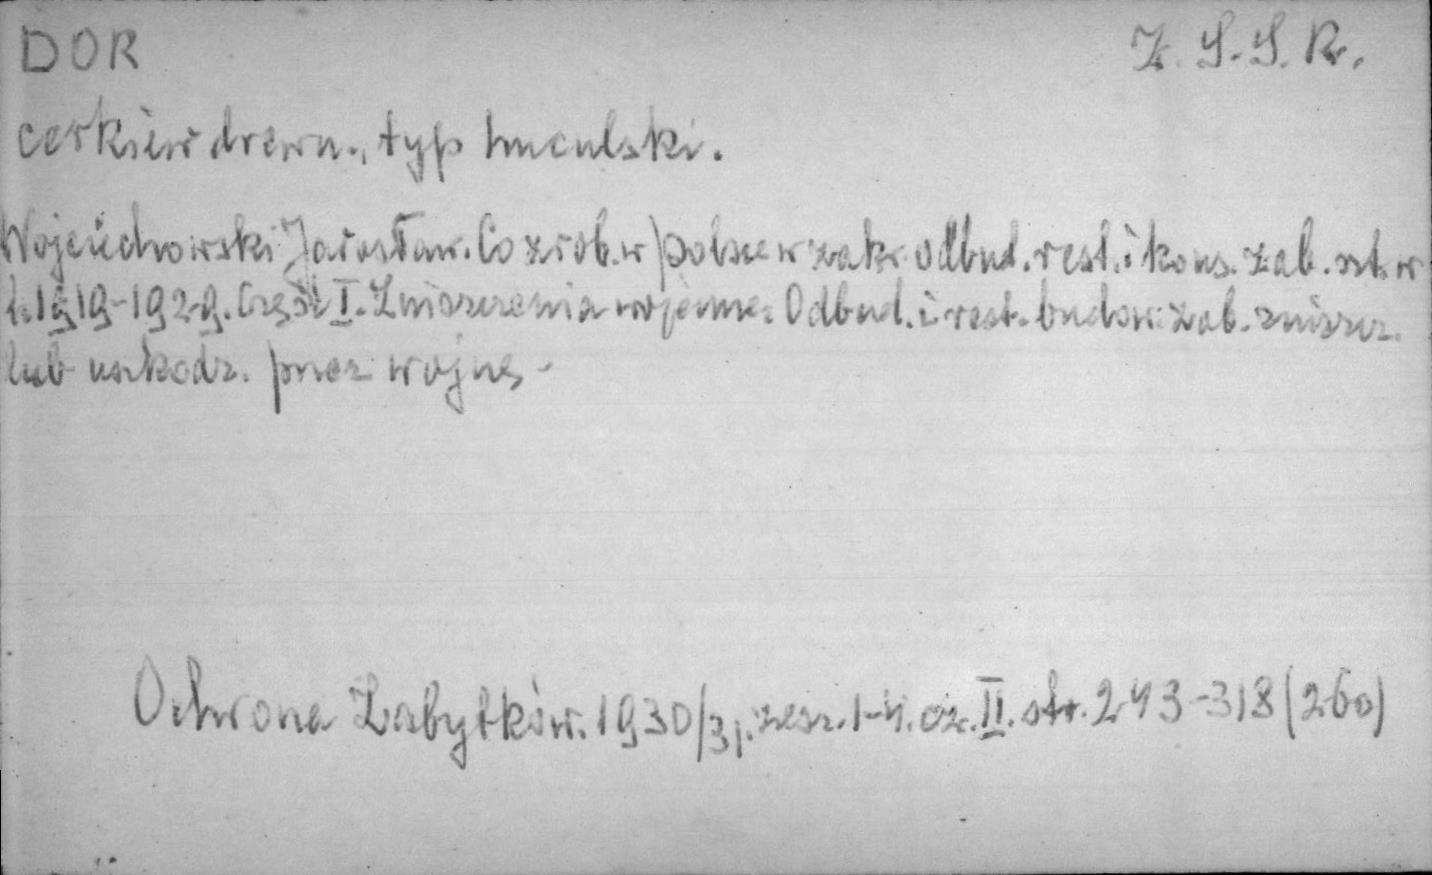 DOR
Z.S.S.R.
cerkiew drewn., typ huculski.
Wojciechowski Jarosław. Co zrob. w Polsce w zakr. odbud. rest. i kons. zab. szt. w
l. 1919-1929. Część I. Zniszczenia wojenne. Odbud. i rest. budow. zab. zniszcz.
lub uszkodz. przez wojnę.
Ochrona Zabytków. 1930/31. zesz. 1-4. cz. II. str. 243-318 (260)